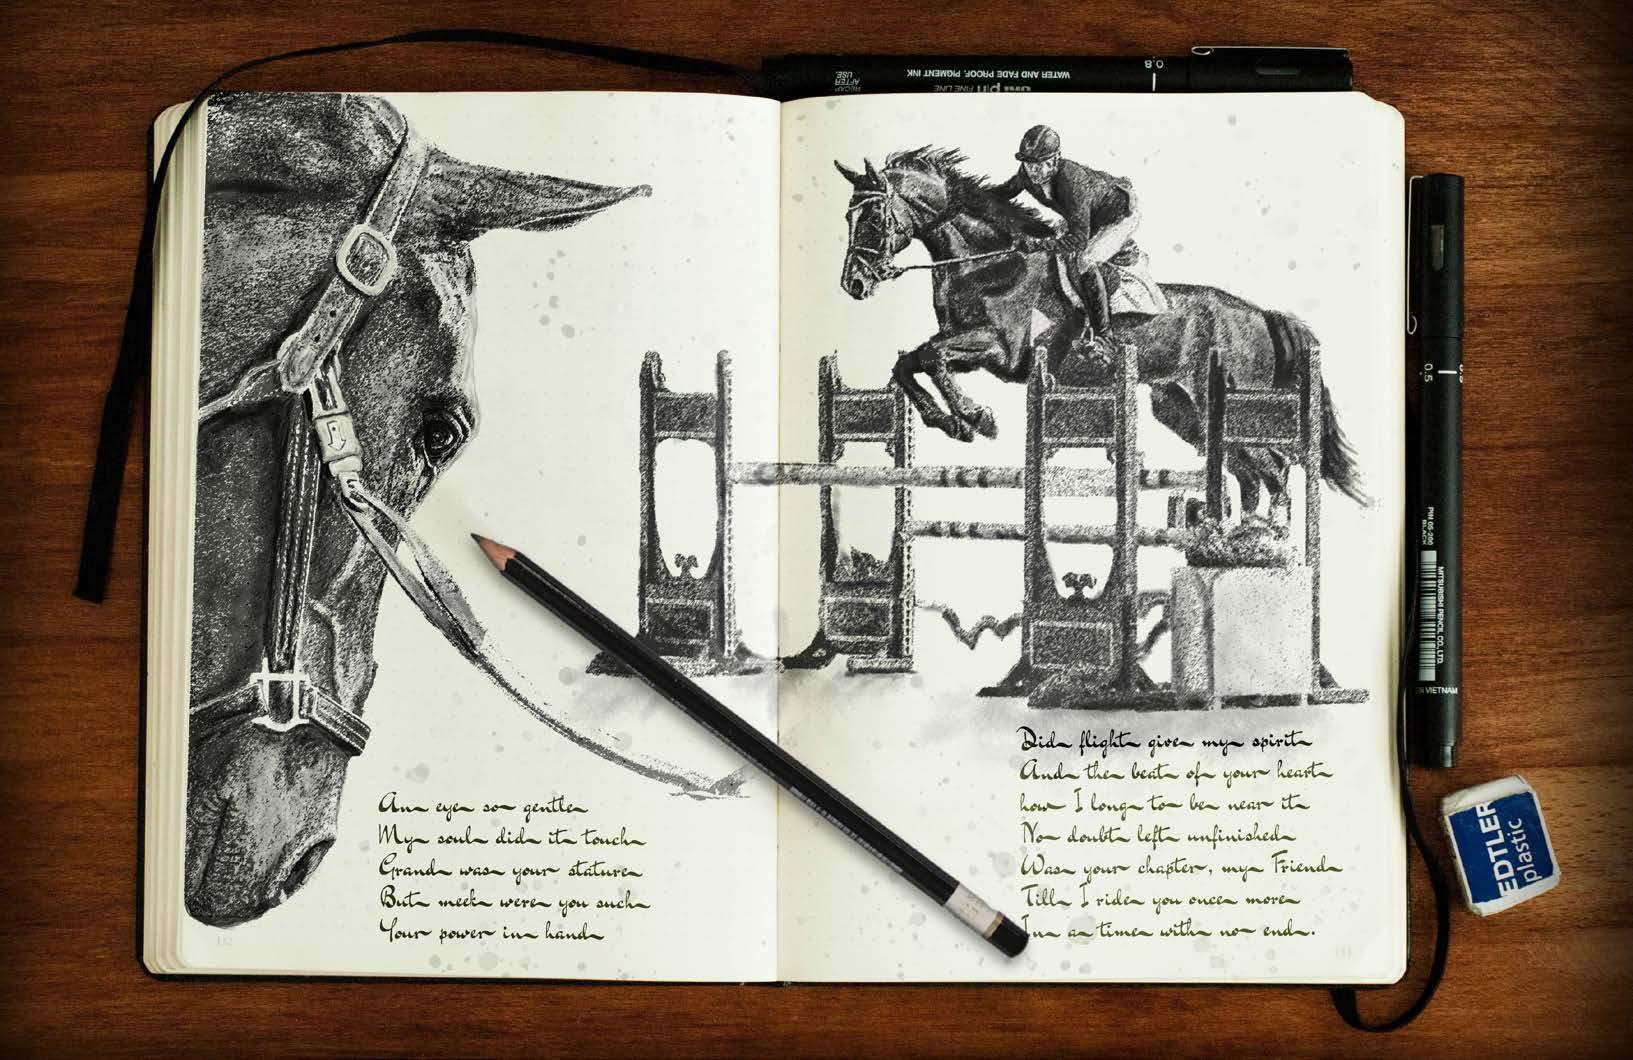 0.8
WATER AND FADE PROOF, PIGMENT INK
RECAP
AFTER
USE.
pin FINE LINE
0.5
PIN 05-200
BLACK
MITSUBISHI PENCIL CO., LTD.
VIETNAM
EDTLER
plastic
An eye so gentle
My soul did it touch
Grand was your stature
But meek were you such
Your power in hand
Did flight give my spirit
And the beat of your heart
how I long to be near it
No doubt left unfinished
Was your chapter, my Friend
Till I ride you once more
In a time with no end.